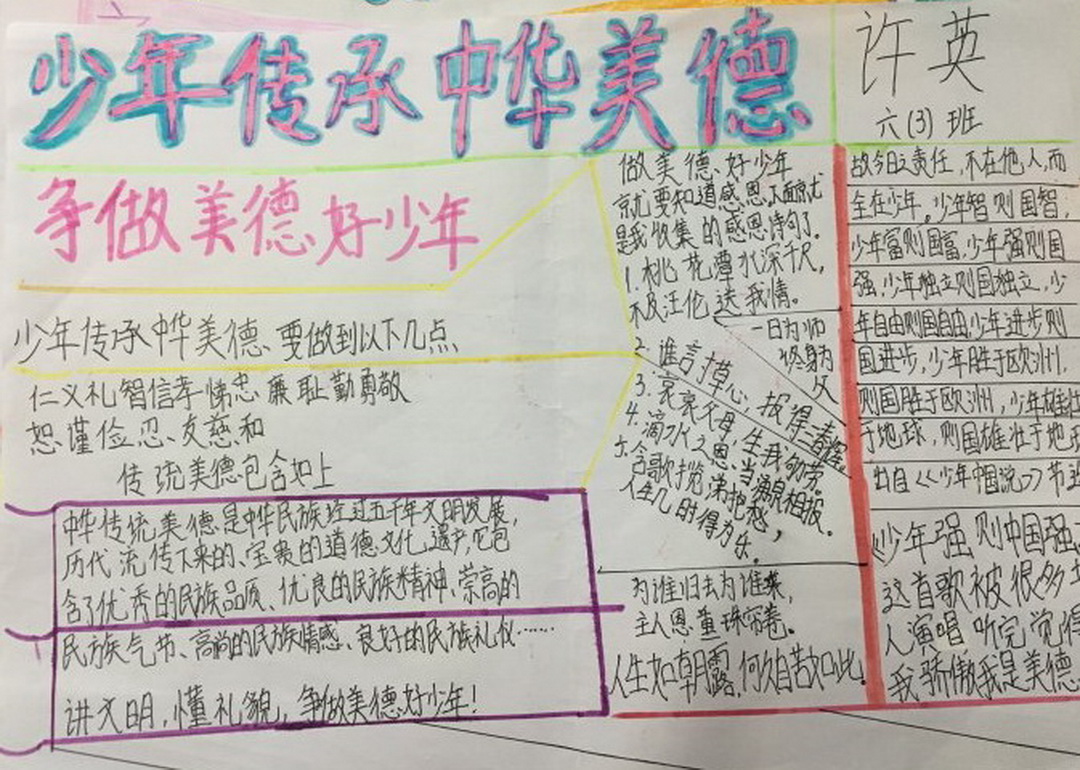 少年传承中华美德
许英
六(3)班
争做美德好少年
少年传承中华美德、要做到以下几点、
仁义礼智信孝悌忠廉耻勤勇敬
恕谨俭忍、友慈和
传统美德包含如上
中华传统美德是中华民族经过五千年文明发展,
历代流传下来的、宝贵的道德文化遗产,它包
含了优秀的民族品质、优良的民族精神、崇高的
民族气节、高尚的民族情感、良好的民族礼仪……
讲文明,懂礼貌,争做美德好少年!
做美德、好少年
就要知道感恩,下面就
是我收集的感恩诗句了。
1.桃花潭水深千尺,
不及汪伦送我情。
一日为师
终身为
父
2.谁言寸草心,报得三春晖。
3.哀哀父母,生我劬劳。
4.滴水之恩、当涌泉相报。
5.含歌揽涕抱愁,
人生几时得为乐。
为谁归去为谁来,
主人恩重珠帘卷。
人生如朝露,何久自苦如此!
故今日之责任,不在他人,而
全在少年。少年智则国智,
少年富则国富,少年强则国
强,少年独立则国独立,少
年自由则国自由,少年进步则
国进步,少年胜于欧洲,
则国胜于欧洲,少年雄壮
于地球,则国雄壮于地球
出自《少年中国说》节
《少年强则中国强
这首歌被很多
人演唱,听完觉得
我骄傲我是美德